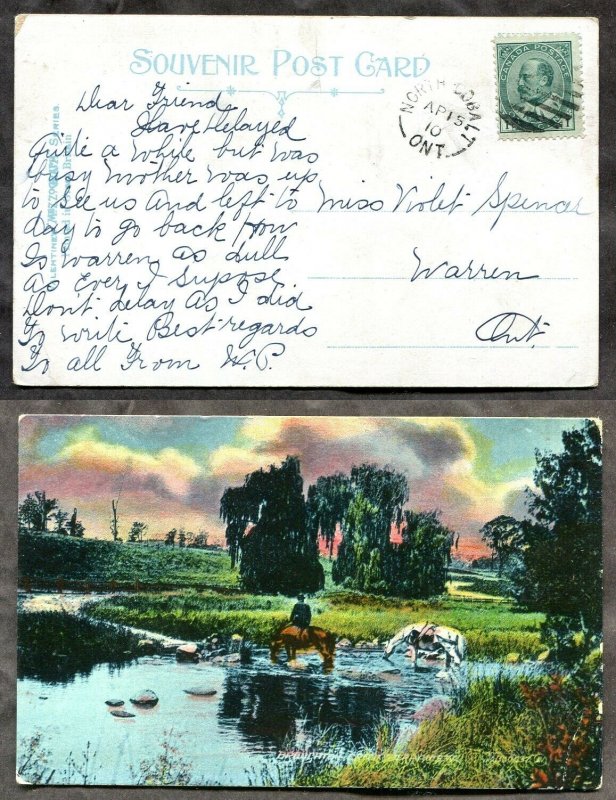 SOUVENIR POST CARD
CANADA POSTAGE
NORTH COBALT
AP 15
10
ONT
Dear Friend
Have Delayed
Quite a while but was
busy Mother was up
to See us and left to
day to go back How
Is Warren as dull
as Ever I Supose
Dont delay As I did
To write Best regards
To all From W.P.
Miss Violet Spencer
Warren
Ont.